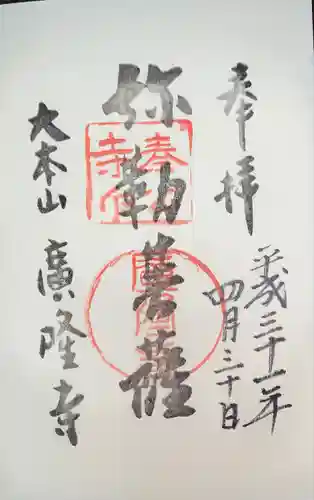 奉拝
平成三十一年
四月三十日
弥勒菩薩
大本山
廣隆寺